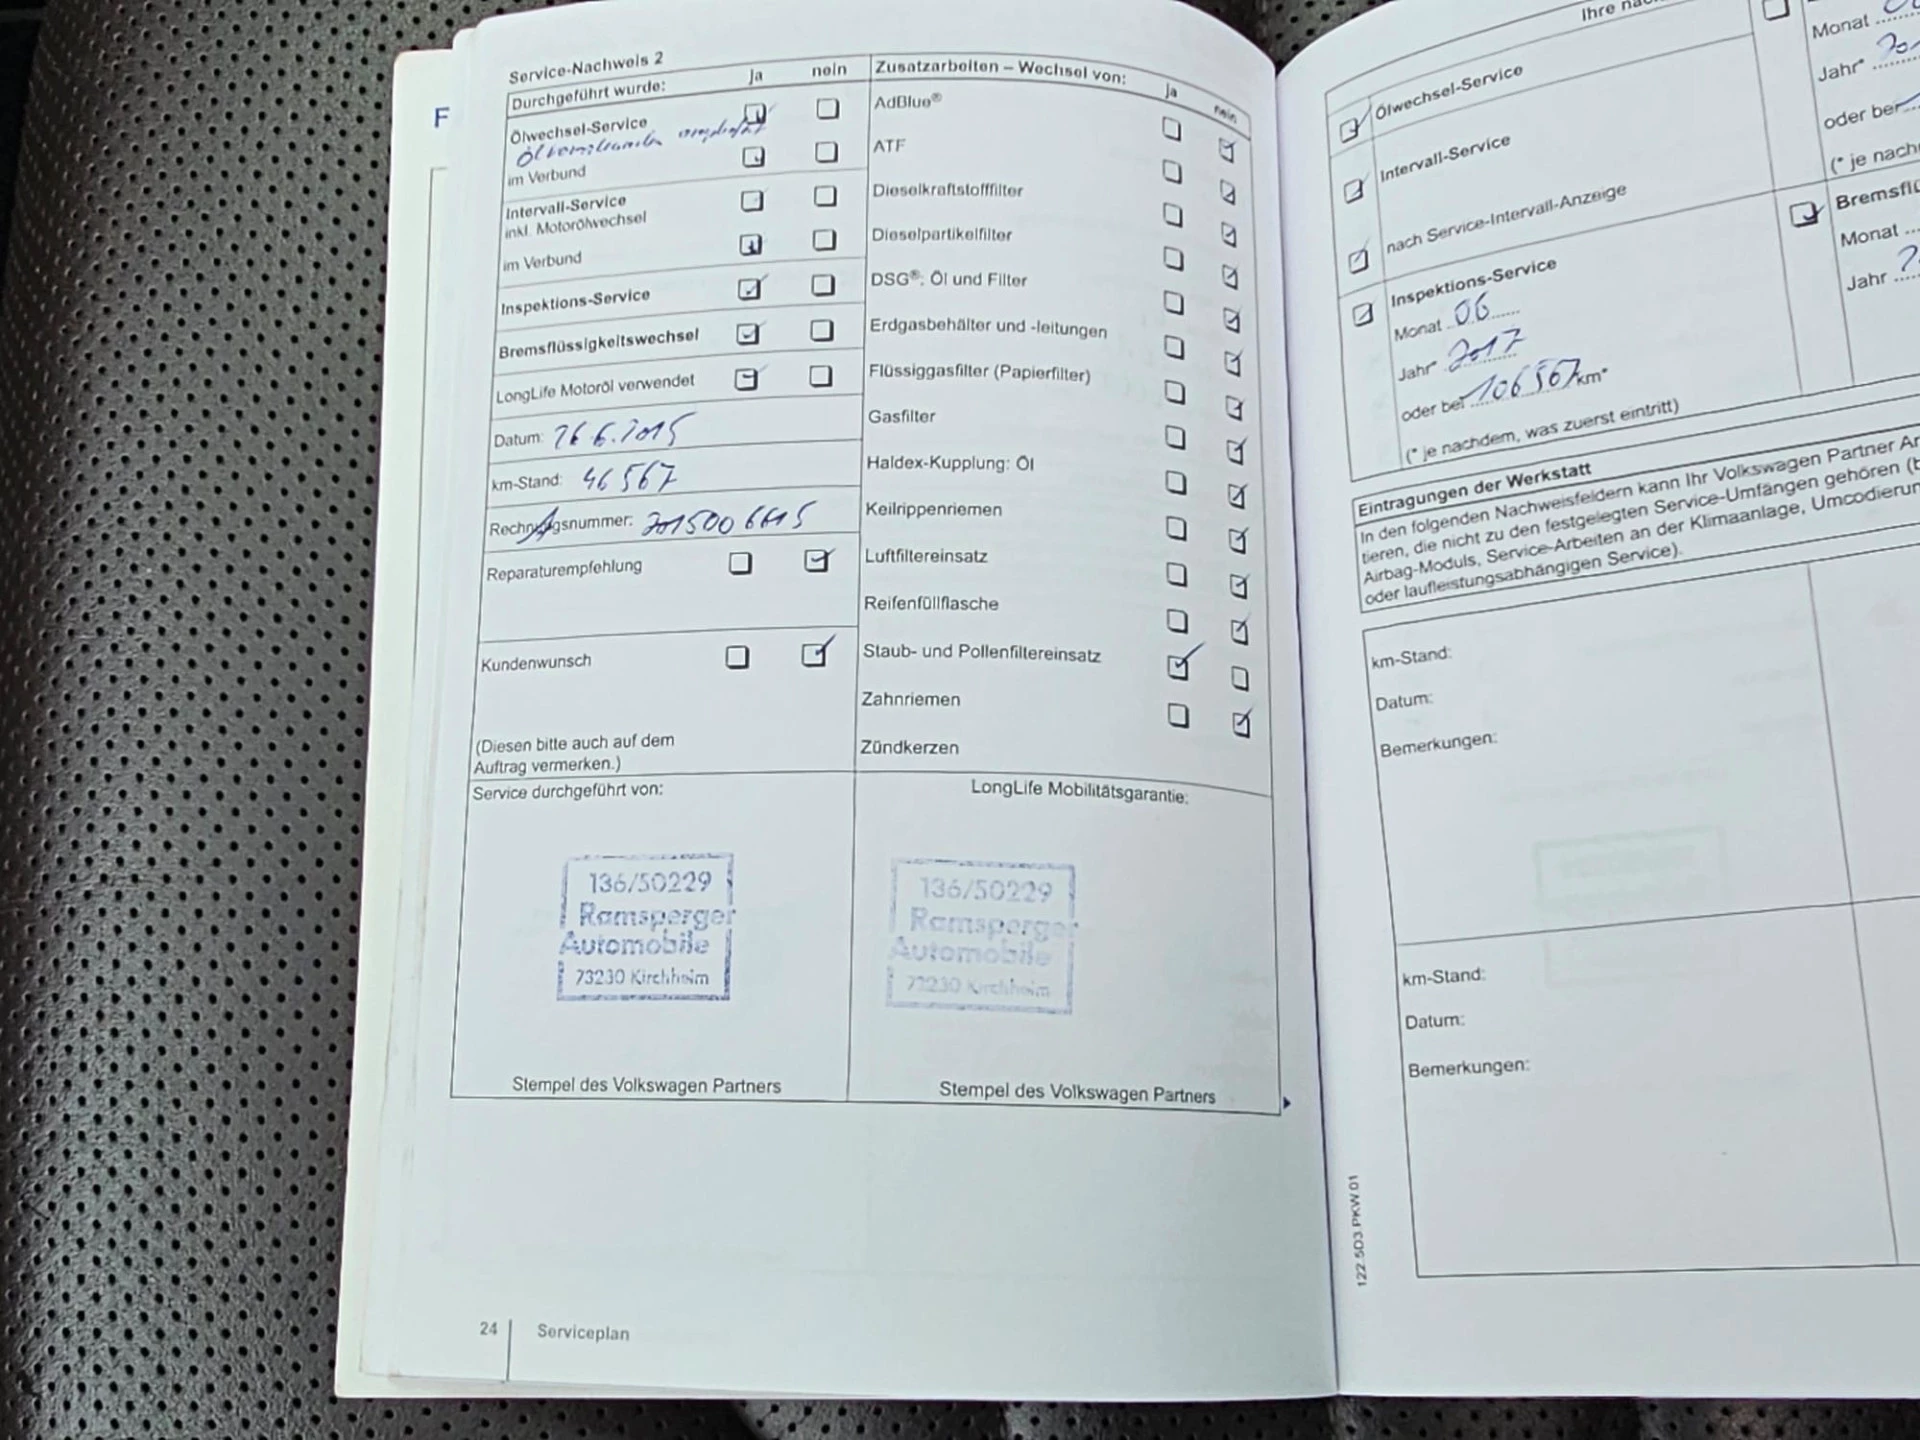 F
Service-Nachweis 2
Durchgeführt wurde: ja nein
Ölwechsel-Service
im Verbund
Intervall-Service
inkl. Motorölwechsel
im Verbund
Inspektions-Service
Bremsflüssigkeitswechsel
LongLife Motoröl verwendet
Datum: 26.6.2015
km-Stand: 46567
Rechnungsnummer: 2015006615
Reparaturempfehlung
Kundenwunsch
(Diesen bitte auch auf dem
Auftrag vermerken.)
Service durchgeführt von:
136/50229
Ramsperger
Automobile
73230 Kirchheim
Stempel des Volkswagen Partners
Zusatzarbeiten – Wechsel von: ja nein
AdBlue®
ATF
Dieselkraftstofffilter
Dieselpartikelfilter
DSG®: Öl und Filter
Erdgasbehälter und -leitungen
Flüssiggasfilter (Papierfilter)
Gasfilter
Haldex-Kupplung: Öl
Keilrippenriemen
Luftfiltereinsatz
Reifenfüllflasche
Staub- und Pollenfiltereinsatz
Zahnriemen
Zündkerzen
LongLife Mobilitätsgarantie:
136/50229
Ramsperger
Automobile
73230 Kirchheim
Stempel des Volkswagen Partners
24 Serviceplan
Ihre
Ölwechsel-Service
Intervall-Service
nach Service-Intervall-Anzeige
Inspektions-Service
Monat 06
Jahr* 2017
oder bei 106567 km*
(* je nachdem, was zuerst eintritt)
Monat
Jahr*
oder bei
(* je nach
Bremsflü
Monat
Jahr
Eintragungen der Werkstatt
In den folgenden Nachweisfeldern kann Ihr Volkswagen Partner Ar
tieren, die nicht zu den festgelegten Service-Umfängen gehören (b
Airbag-Moduls, Service-Arbeiten an der Klimaanlage, Umcodierun
oder laufleistungsabhängigen Service).
km-Stand:
Datum:
Bemerkungen:
km-Stand:
Datum:
Bemerkungen:
122.5D3.PKW.01